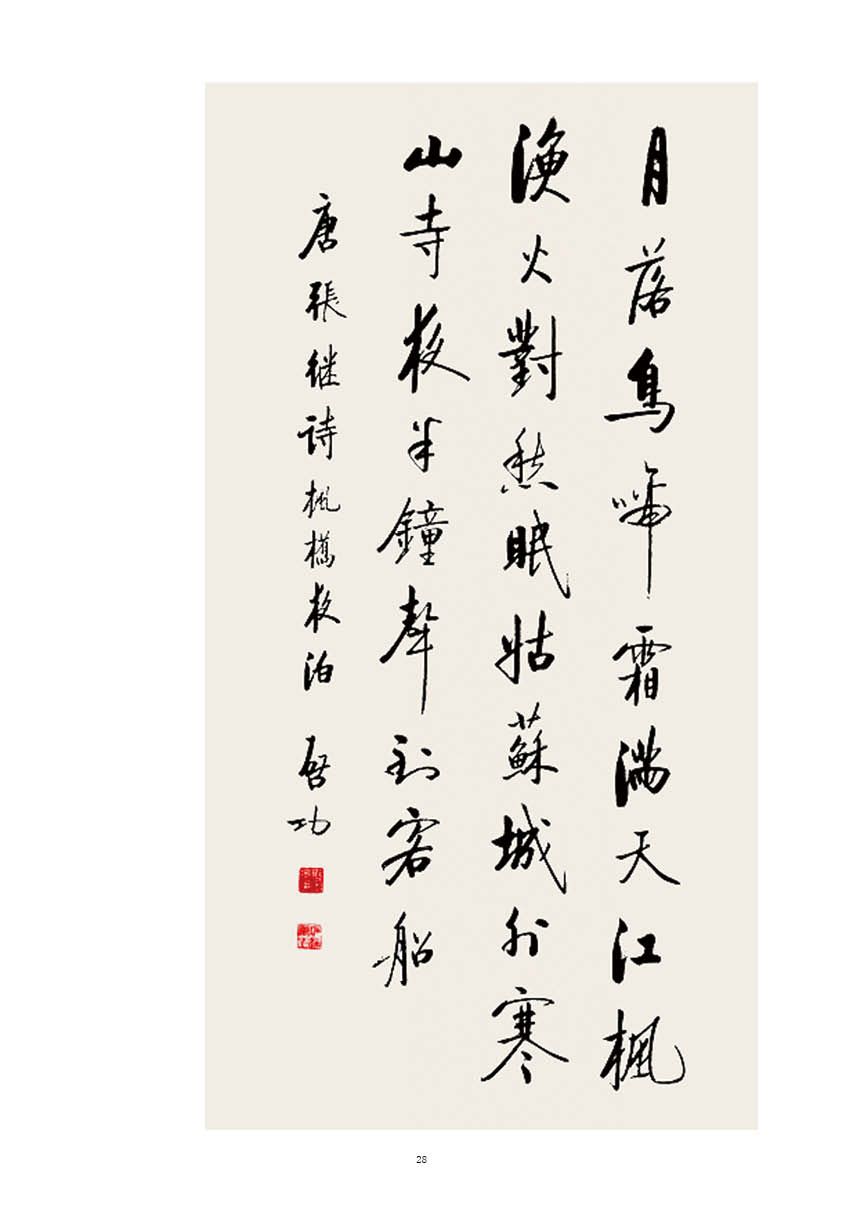 月落烏啼霜满天江楓
漁火對愁眠姑蘇城外寒
山寺夜半鐘聲到客船
唐張继诗楓橋夜泊 啓功
28